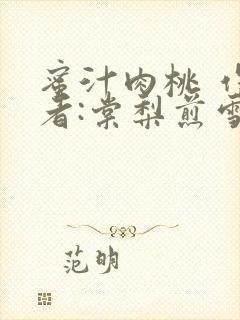 蜜汁肉桃 作
者:棠梨煎雪
范明